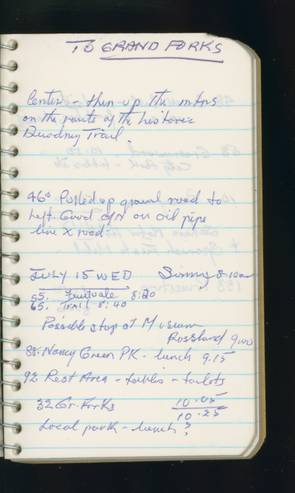 TO GRAND FORKS
Center - then up the mtns
on the route of the historic
Dewdney Trail
46° Pulled up ground road to
left. Good on oil pipe
line X road
JULY 15 WED Sunny 8:10am
55. Fruitvale 8:20
65. TRAIL 8:40
Possible stop at Museum
Rossland 9:00
88. Nancy Green PK. - lunch 9.15
92 Rest Area - tables - toilets
32 Gr. Forks 10.05
10.25
Local park - lunch?